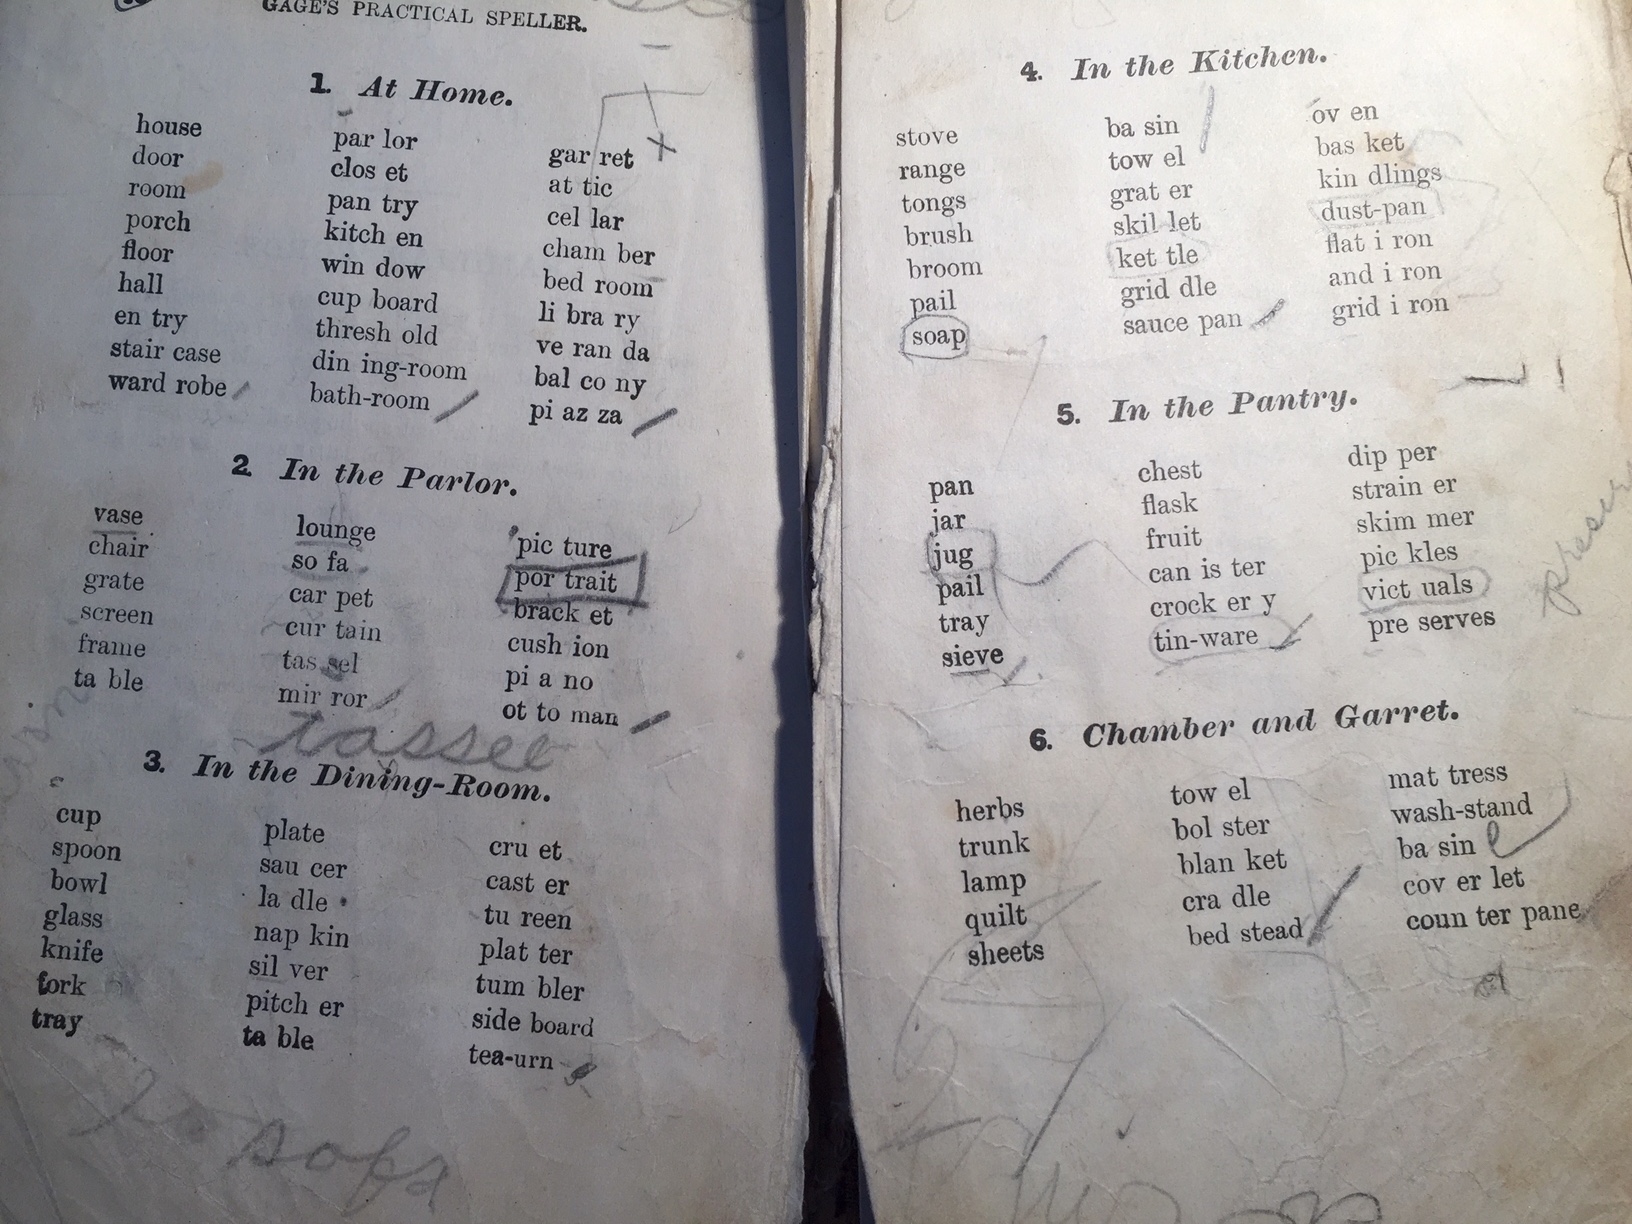 GAGE'S PRACTICAL SPELLER.
1. At Home.
house
door
room
porch
floor
hall
en try
stair case
ward robe
par lor
clos et
pan try
kitch en
win dow
cup board
thresh old
din ing-room
bath-room
gar ret
at tic
cel lar
cham ber
bed room
li bra ry
ve ran da
bal co ny
pi az za
2. In the Parlor.
vase
chair
grate
screen
frame
ta ble
lounge
so fa
car pet
cur tain
tas sel
mir ror
pic ture
por trait
brack et
cush ion
pi a no
ot to man
tassel
3. In the Dining-Room.
cup
spoon
bowl
glass
knife
fork
tray
plate
sau cer
la dle
nap kin
sil ver
pitch er
ta ble
cru et
cast er
tu reen
plat ter
tum bler
side board
tea-urn
sofa
4. In the Kitchen.
stove
range
tongs
brush
broom
pail
soap
ba sin
tow el
grat er
skil let
ket tle
grid dle
sauce pan
ov en
bas ket
kin dlings
dust-pan
flat i ron
and i ron
grid i ron
5. In the Pantry.
pan
jar
jug
pail
tray
sieve
chest
flask
fruit
can is ter
crock er y
tin-ware
dip per
strain er
skim mer
pic kles
vict uals
pre serves
6. Chamber and Garret.
herbs
trunk
lamp
quilt
sheets
tow el
bol ster
blan ket
cra dle
bed stead
mat tress
wash-stand
ba sin
cov er let
coun ter pane